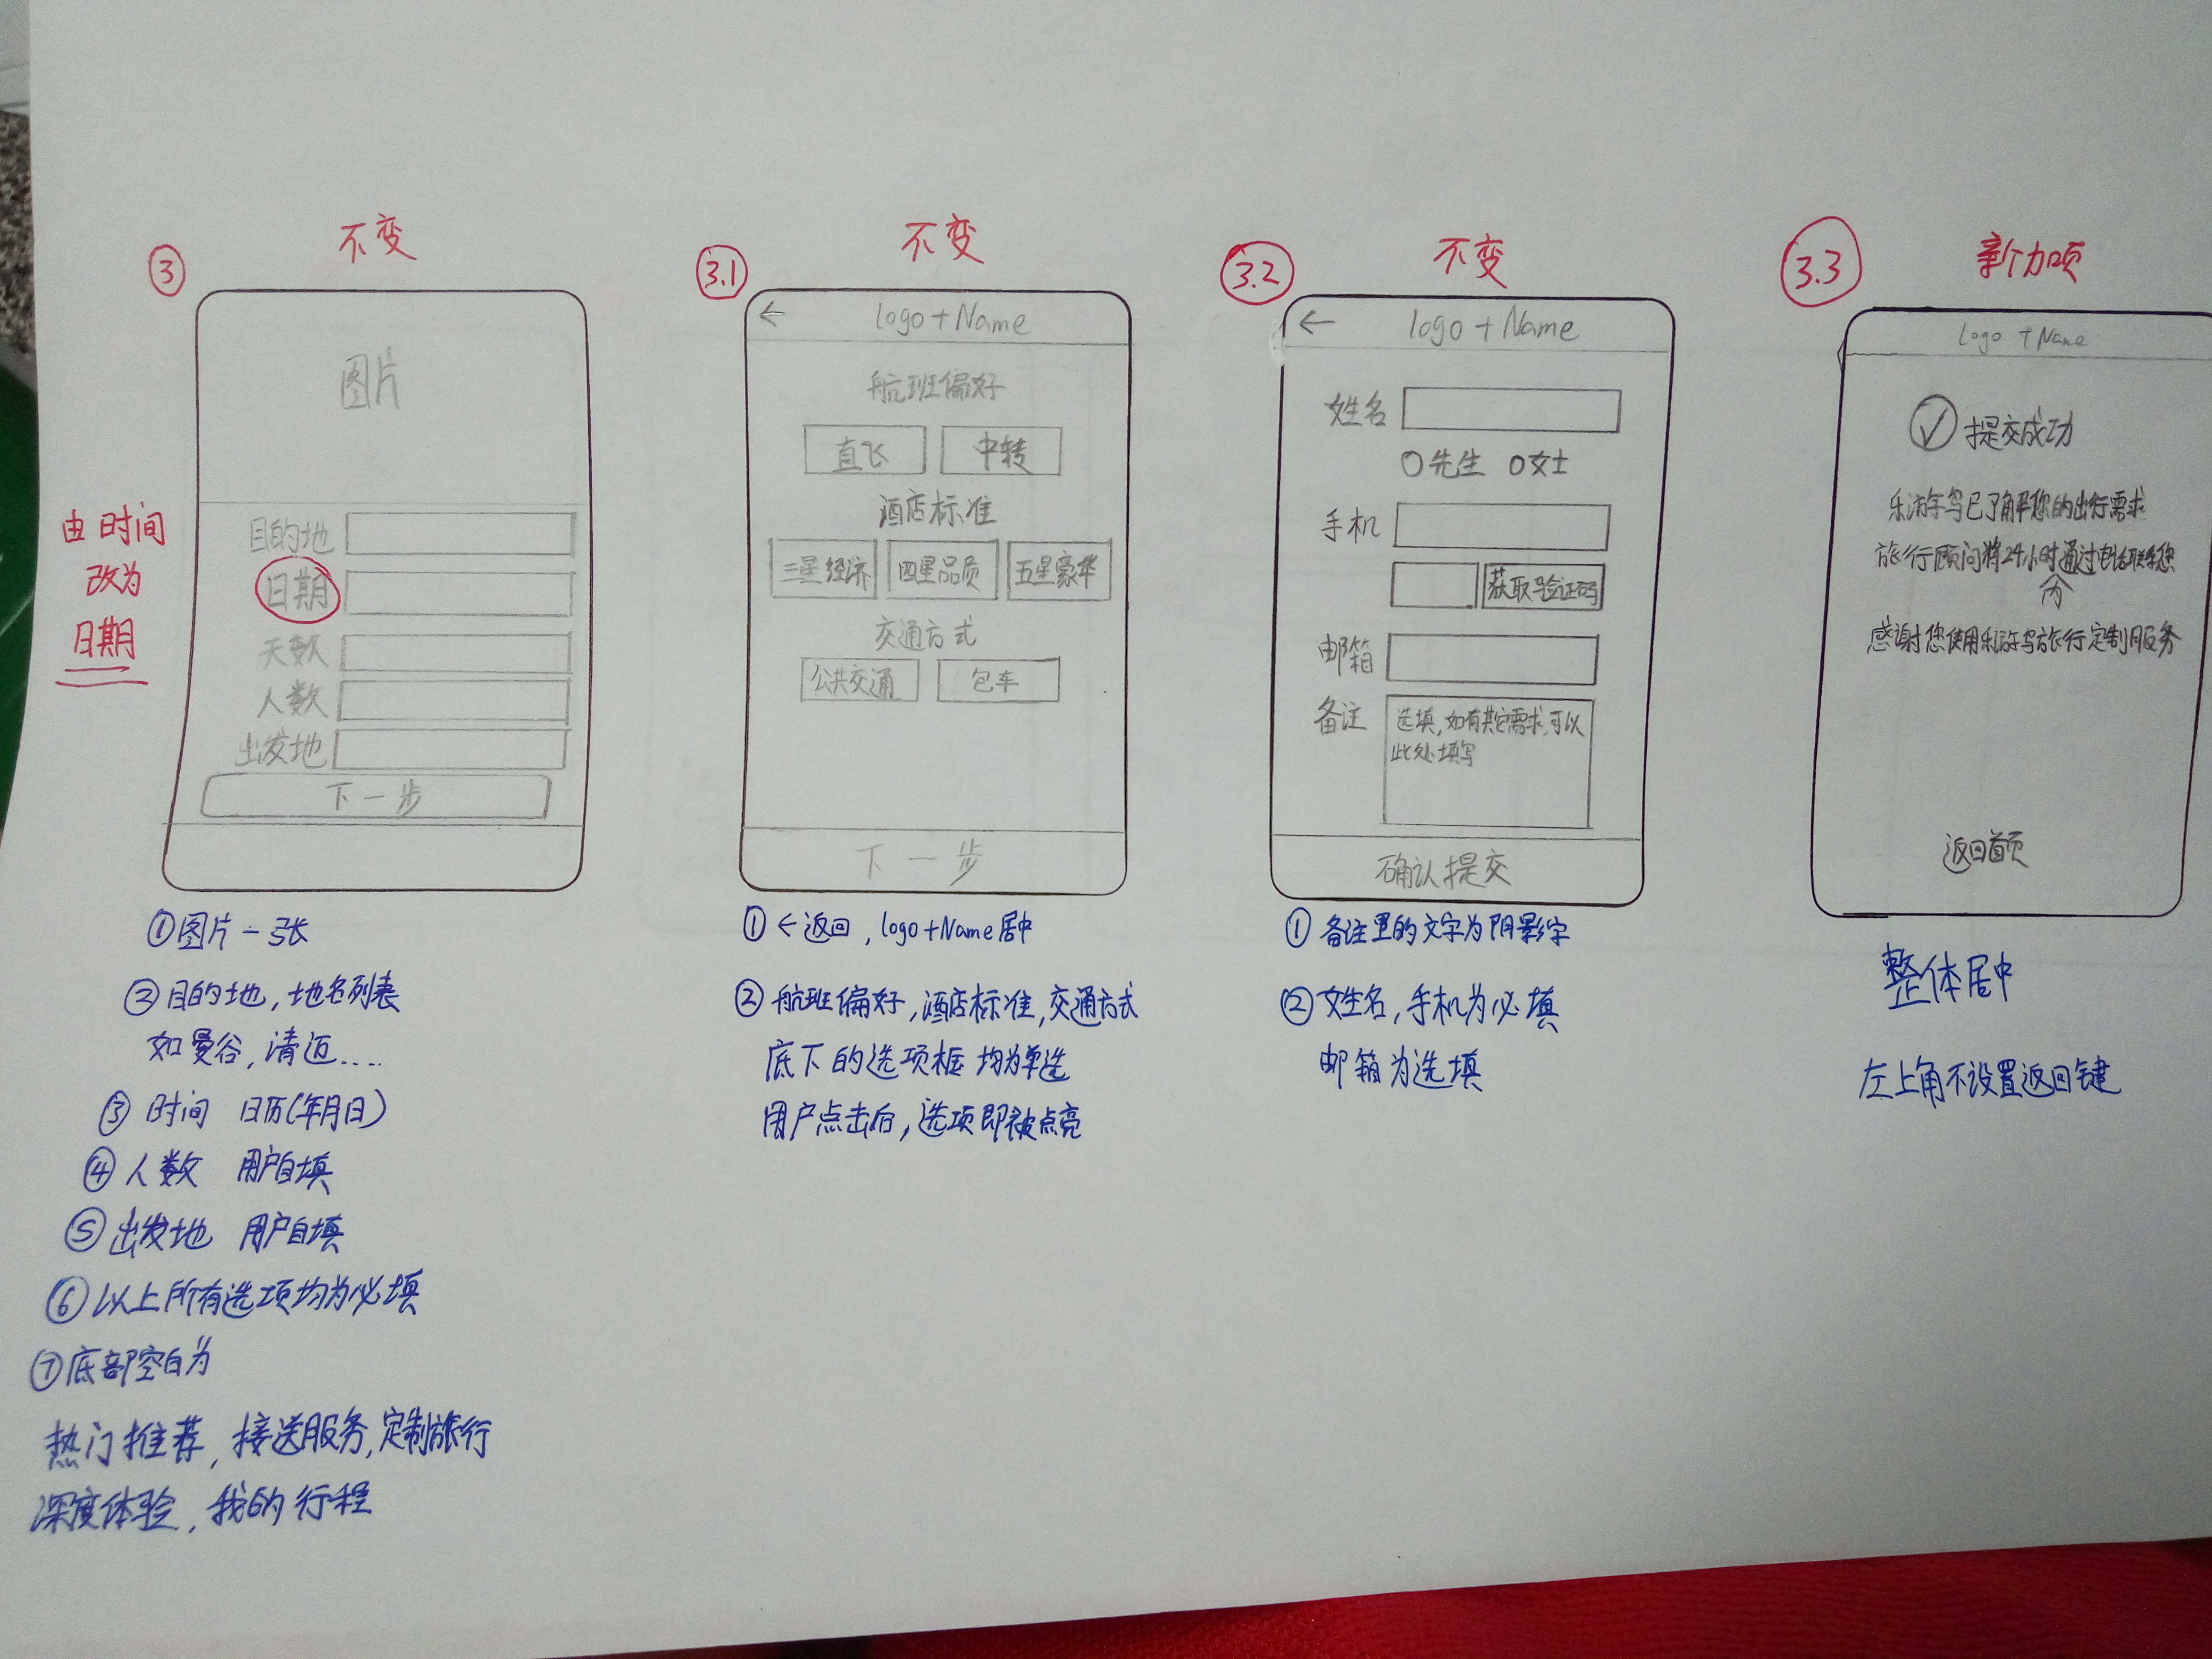 ③ 不变
图片
目的地
日期
天数
人数
出发地
下一步
由时间
改为
日期
①图片一张
②目的地,地名列表
如曼谷,清迈....
③ 时间 日历(年月日)
④人数 用户自填
⑤出发地 用户自填
⑥以上所有选项均为必填
⑦底部空白为
热门推荐,接送服务,定制旅行
深度体验,我的行程
3.1 不变
← logo+Name
航班偏好
直飞 中转
酒店标准
三星经济 四星品质 五星豪华
交通方式
公共交通 包车
下一步
①←返回,logo+Name居中
②航班偏好,酒店标准,交通方式
底下的选项框均为单选
用户点击后,选项即被点亮
3.2 不变
← logo+Name
姓名
○先生 ○女士
手机
获取验证码
邮箱
备注 选填,如有其它需求,可以
此处填写
确认提交
①备注里的文字为阴影字
②姓名,手机为必填
邮箱为选填
3.3 新加项
Logo+Name
✓提交成功
乐游鸟已了解您的出行需求
旅行顾问将24小时内通过电话联系您
感谢您使用乐游鸟旅行定制服务
返回首页
整体居中
左上角不设置返回键